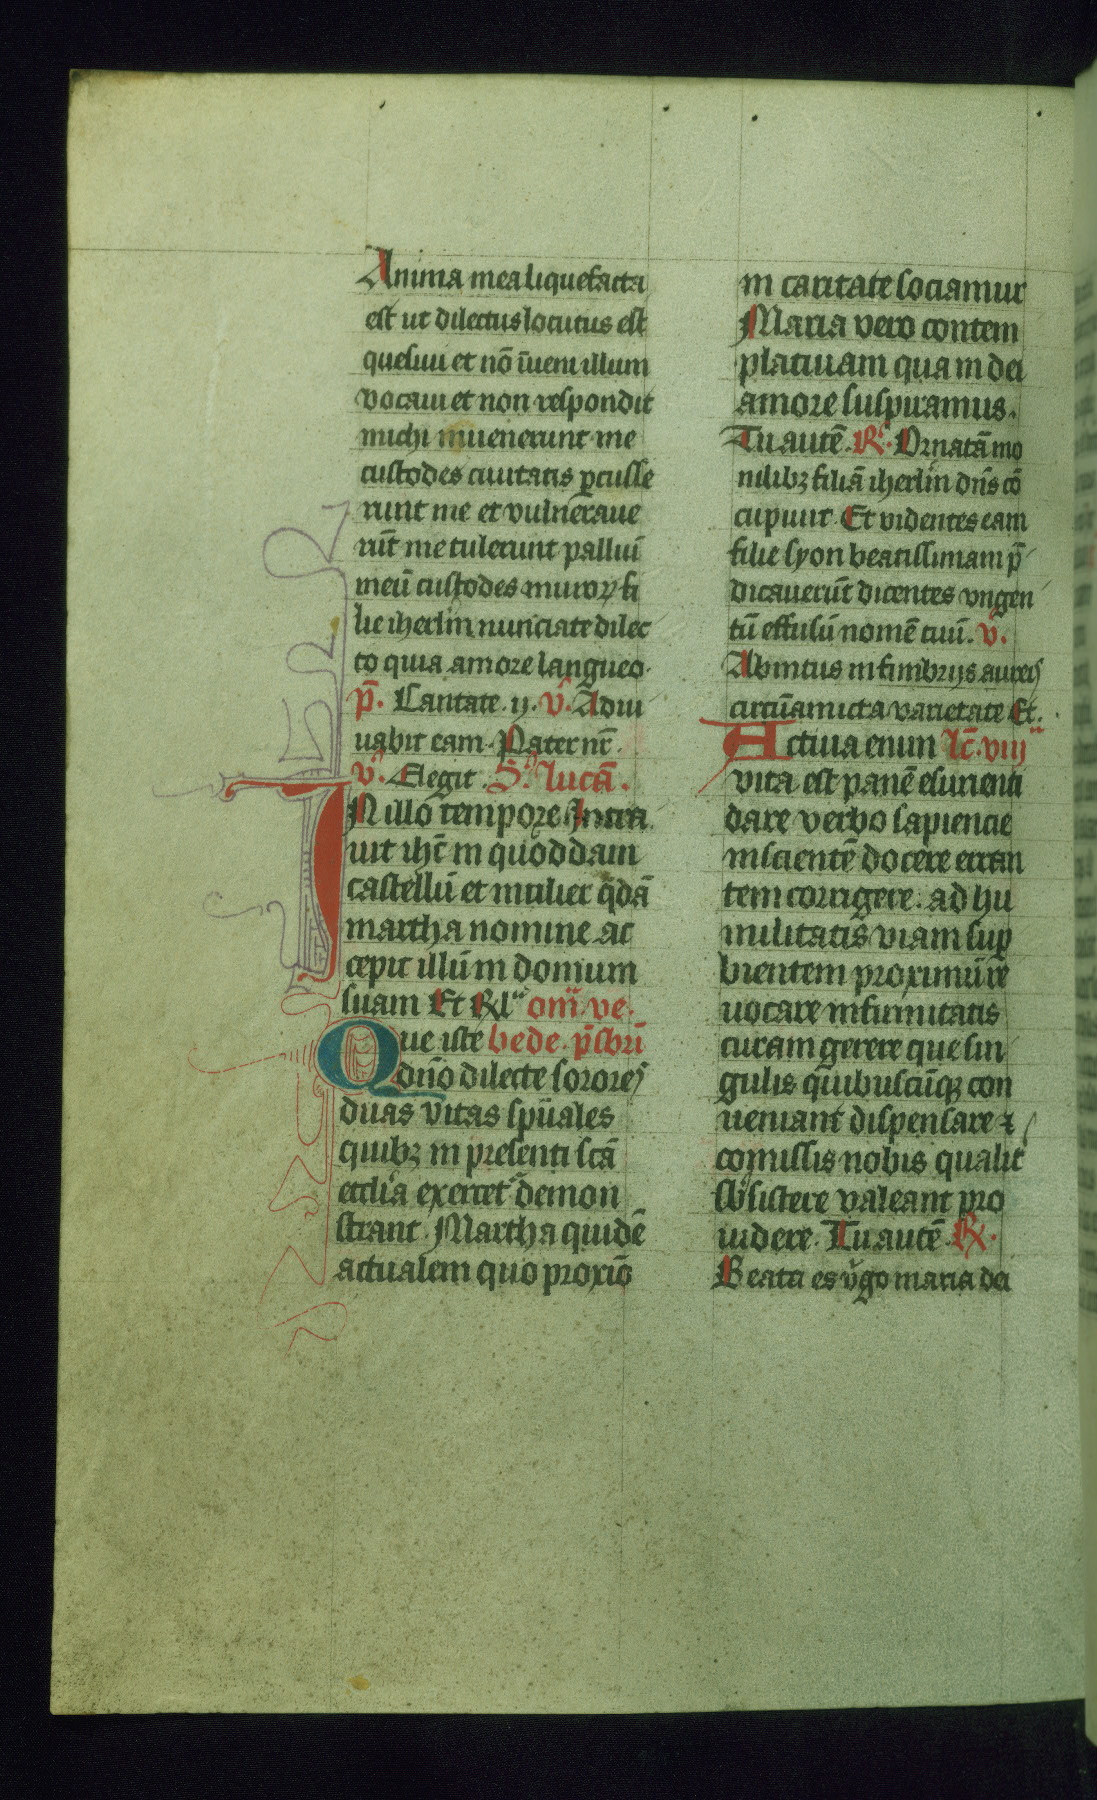 Anima mea liquefacta
est ut dilectus locutus est
quesiui et nō īueni illum
vocaui et non respondit
michi inuenerunt me
custodes ciuitatis ꝑcusse
runt me et vulneraue
rūt me tulerunt palliū
meū custodes muroꝝ fi
lie iherlm̄ nunciate dilec
to quia amore langueo.
p̄. Cantate. ij. v̓. Adiu
uabit eam. Pater nr̄.
v̓. Elegit. S. lucā.
IN illo tempore Intra
uit ihc̄ in quoddam
castellū et mulier q̄dā
martha nomine ac
cepit illū in domum
suam Et Rl̓ om̄. ve.
Que iste bede. p̄sbri̅
dn̄o dilecte sorores
duas vitas sp̄uales
quibꝫ in presenti scā
eccl̓ia exercet demon
strant. Martha quidē
actualem quo proxīo
in caritate sociamur
Maria vero contem
platiuam qua in dei
amore suspiramus.
Tu autē. R̓. Ornatā mo
nilibꝫ filiā iherlm̄ dn̄s cō
cupiuit. Et videntes eam
filie syon beatissimam p̄
dicauerūt dicentes vngen
tū effusū nomē tuū. v̓.
Abintus in fimbrijs aureis
circūamicta varietate Et.
Actiua enim lc̄. viij
vita est panē esurienti
dare verbo sapiencie
inscientē docere erran
tem corrigere. ad hu
militatis viam suꝑ
bientem proximū re
uocare infirmitatis
curam gerere que sin
gulis quibuscūqꝫ con
ueniant dispensare ⁊
cōmissis nobis qualit̓
sb̓sistere valeant pro
uidere. Tu autē. R̓.
Beata es v̓go maria dei